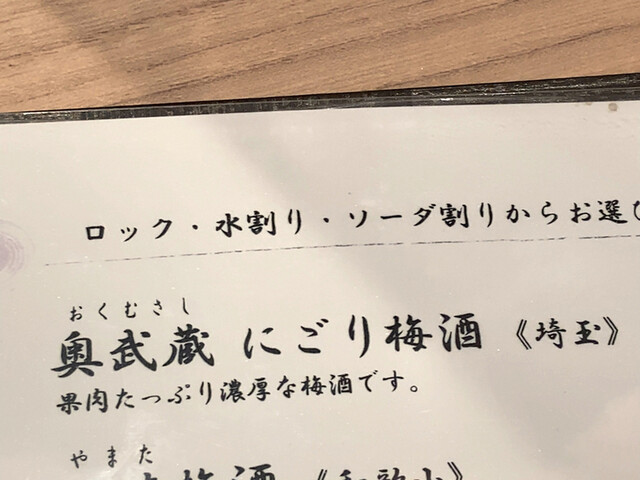 ロック・水割り・ソーダ割りからお選び
おくむさし
奥武蔵 にごり梅酒 《埼玉》
果肉たっぷり濃厚な梅酒です。
やまた
梅酒 《和歌山》